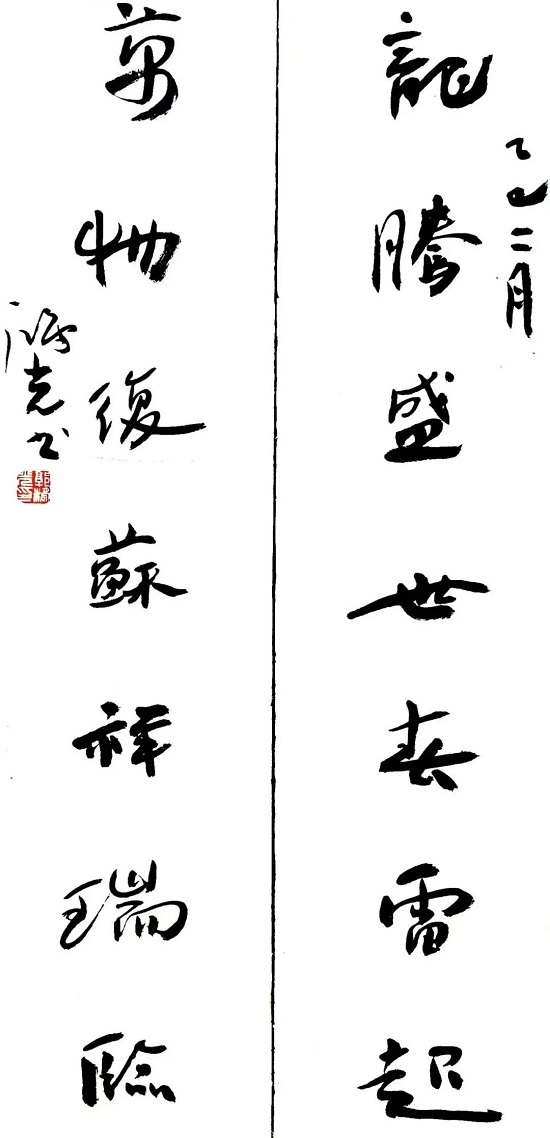 乙巳二月
龍騰盛世春雷起
萬物復蘇祥瑞臨
书